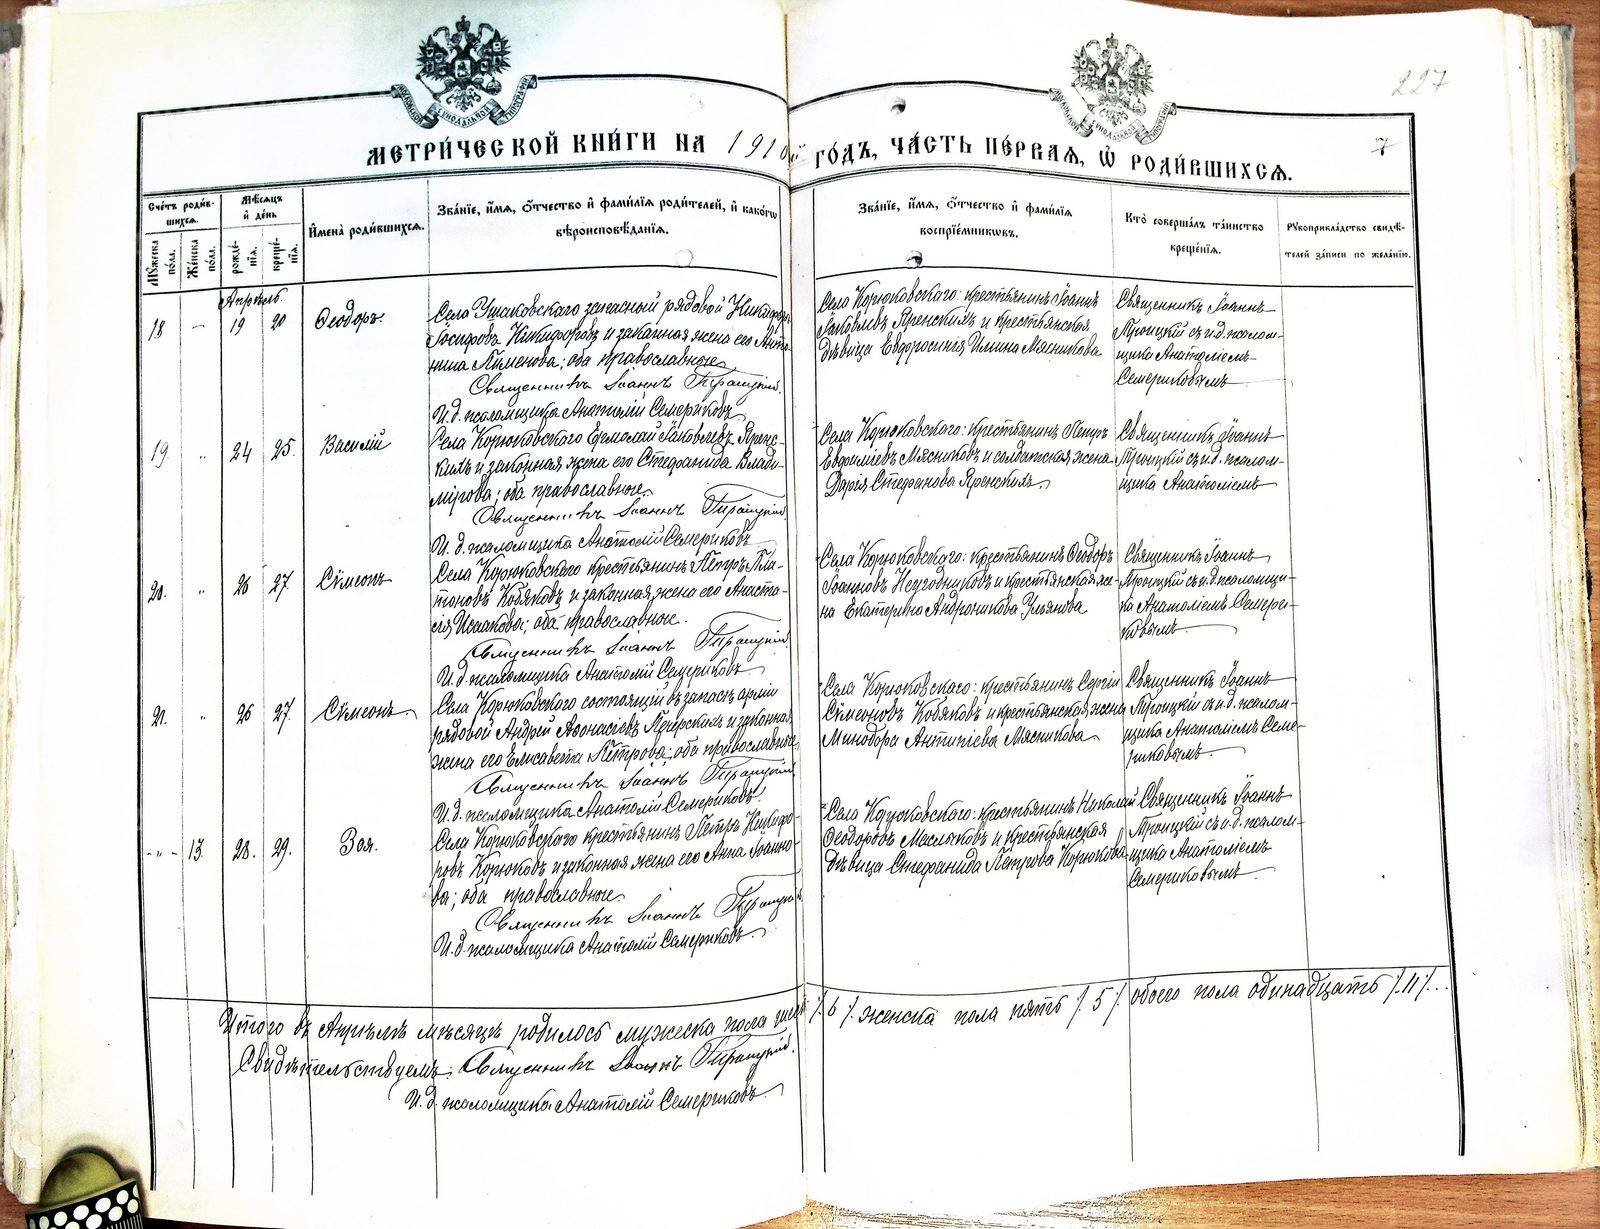 227
МОСКОВСКОЙ СѴНОДАЛЬНОЙ ТИПОГРАФІИ
МОСКОВСКОЙ СѴНОДАЛЬНОЙ ТИПОГРАФІИ
МЕТРИ́ЧЕСКОЙ КНИ́ГИ НА 1910й ГО́ДЪ, ЧА́СТЬ ПЕ́РВАѦ, Ѡ҆ РОДИ́ВШИХСѦ.
7
Сче́тъ роди́в-
шихсѧ.
Мꙋжеска по́ла.
Же́нска по́ла.
Мѣ́сѧцъ
и҆ де́нь
рожде́-
нїѧ.
креще́-
нїѧ.
И҆мена̀ роди́вшихсѧ.
Зва́нїе, и҆́мѧ, ѻ҆́тчество и҆ фами́лїѧ роди́телей, и҆ како́гѡ
вѣроисповѣ́данїѧ.
Зва́нїе, и҆́мѧ, ѻ҆́тчество и҆ фами́лїѧ
воспрїе́мникѡвъ.
Кто̀ соверша́лъ та́инство
креще́нїѧ.
Рꙋкоприкла́дство свидѣ́-
телей за́писи по жела́нїю.
Апрѣль.
18 — 19 20 Ѳеодоръ.
Села Ушаковского запасный рядовой Никифоръ
Іосифовъ Никифоровъ и законная жена его Анто-
нина Пименова; оба православные
Священникъ Іоаннъ Троицкій.
И. д. псаломщика Анатолій Семериковъ
Села Корюковского: крестьянинъ Іоаннъ
Іаковлевъ Яренскихъ и крестьянская
дѣвица Евдоросинія Ильина Мясникова
Священникъ Іоаннъ
Троицкій съ и. д. псалом-
щика Анатоліемъ
Семериковымъ
19 " 24 25. Василій
Села Корюковского Ермолай Іаковлевъ Яренс-
кихъ и законная жена его Стефанида Влади-
мірова; оба православные.
Священникъ Іоаннъ Троицкій.
И. д. псаломщика Анатолій Семериковъ
Села Корюковского: крестьянинъ Петръ
Евфиміевъ Мясниковъ и солдатская жена
Дарія Стефанова Яренскихъ.
Священникъ Іоаннъ
Троицкій съ и. д. псалом-
щика Анатоліемъ
20. " 26 27. Сѵмеонъ
Села Корюковского крестьянинъ Петръ Пла-
тоновъ Кобяковъ и законная жена его Анаста-
сія Исаакова; оба православные.
Священникъ Іоаннъ Троицкій
И. д. псаломщика Анатолій Семериковъ
Села Корюковского: крестьянинъ Ѳеодоръ
Іоанновъ Неугодниковъ и крестьянская же-
на Екатерина Андроникова Ульянова
Священникъ Іоаннъ
Троицкій съ и. д. псаломщи-
ка Анатоліемъ Семери-
ковымъ
21. " 26 27. Сѵмеонъ.
Села Корюковского состоящій въ запасѣ арміи
рядовой Андрей Аѳонасіевъ Печерскихъ и законная
жена его Елисавета Петрова; оба православные
Священникъ Іоаннъ Троицкій
И. д. псаломщика Анатолій Семериковъ.
Села Корюковского: крестьянинъ Сергій
Сѵмеоновъ Кобяковъ и крестьянская жена
Минодора Антипіева Мясникова.
Священникъ Іоаннъ
Троицкій съ и. д. псалом-
щика Анатоліемъ Семе-
риковымъ.
-"- 13. 28. 29. Зоя.
Села Корюковского крестьянинъ Петръ Никифо-
ровъ Корюковъ и законная жена его Анна Іоанно-
ва; оба православные.
Священникъ Іоаннъ Троицкій
И. д. псаломщика Анатолій Семериковъ.
Села Корюковского: крестьянинъ Николай
Ѳеодоровъ Масльковъ и крестьянская
дѣвица Стефанида Петрова Корюкова
Священникъ Іоаннъ
Троицкій съ и. д. псалом-
щика Анатоліемъ
Семериковымъ
Итого въ Апрѣлѣ мѣсяцѣ родилось мужеска пола шесть /. 6 /. женска пола пять /. 5 /. обоего пола одинадцать /. 11 /.
Свидѣтельствуемъ: Священникъ Іоаннъ Троицкій.
И. д. псаломщика Анатолій Семериковъ.